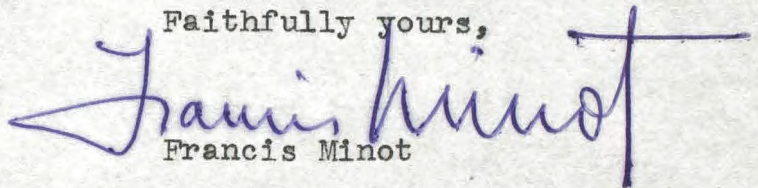 Faithfully yours,
Francis Minot
Francis Minot